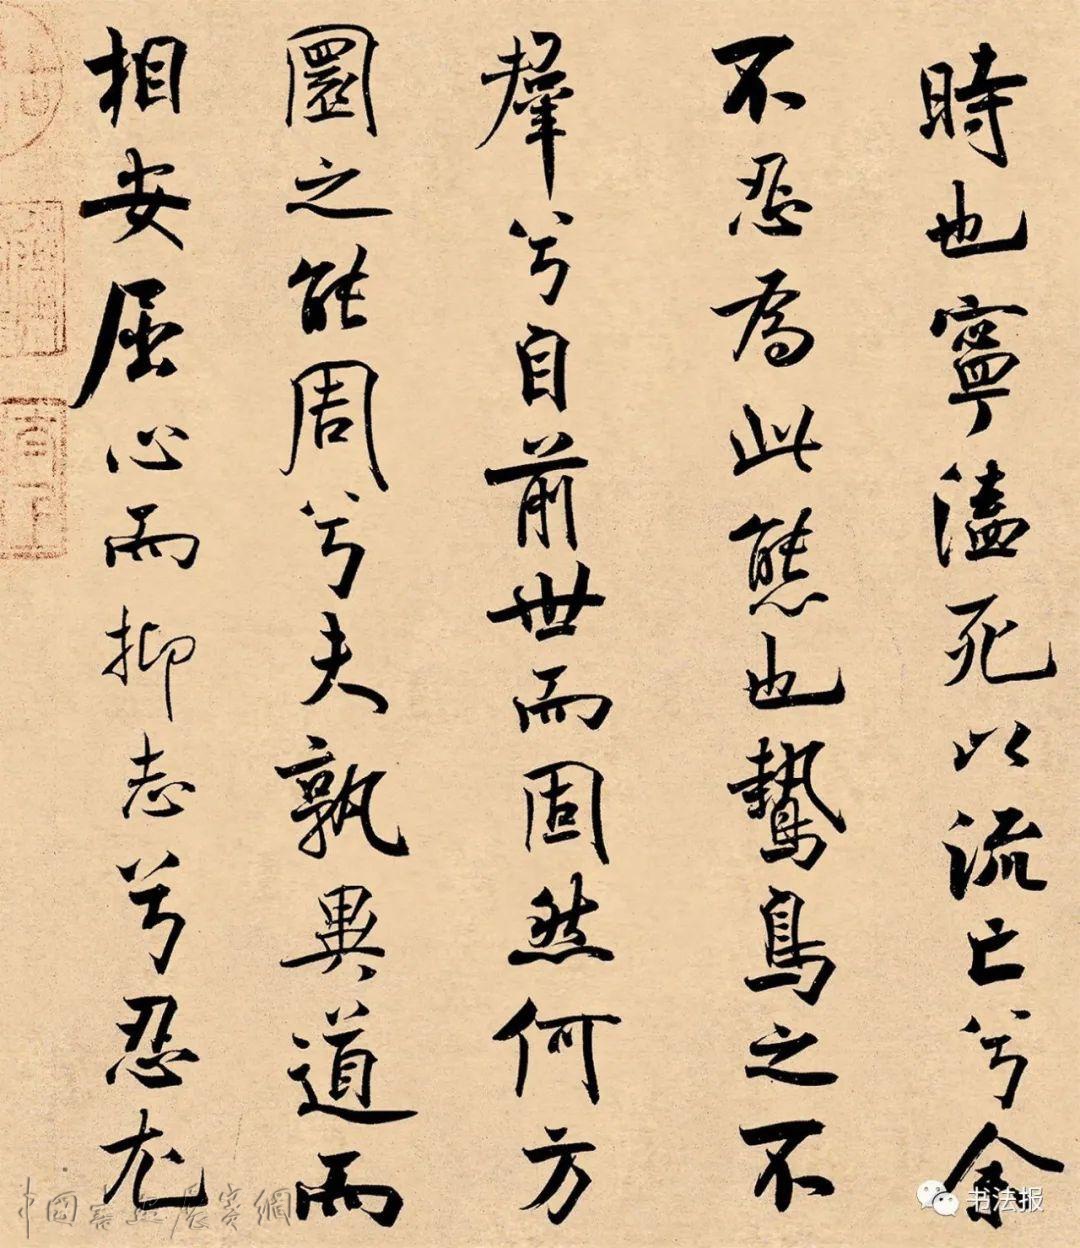 時也寧溘死以流亡兮余
不忍為此態也鷙鳥之不
羣兮自前世而固然何方
圜之能周兮夫孰異道而
相安屈心而抑志兮忍尤
中國書法展賽網
书法报